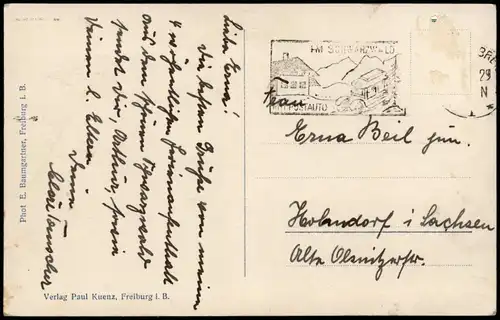 Liebe Erna!
Die besten Grüße von meinem
4 wöchentlichen Ferienaufenthalt
aus dem schönen Schwarzwald
sendet Dir, Arthur, sowie
Deinen l. Eltern
Deine
Phot E. Baumgartner, Freiburg i. B.
Verlag Paul Kuenz, Freiburg i. B.
IM SCHWARZWALD
POSTAUTO
29
N
Frau
Erna Beil jun.
i Sachsen
Alte